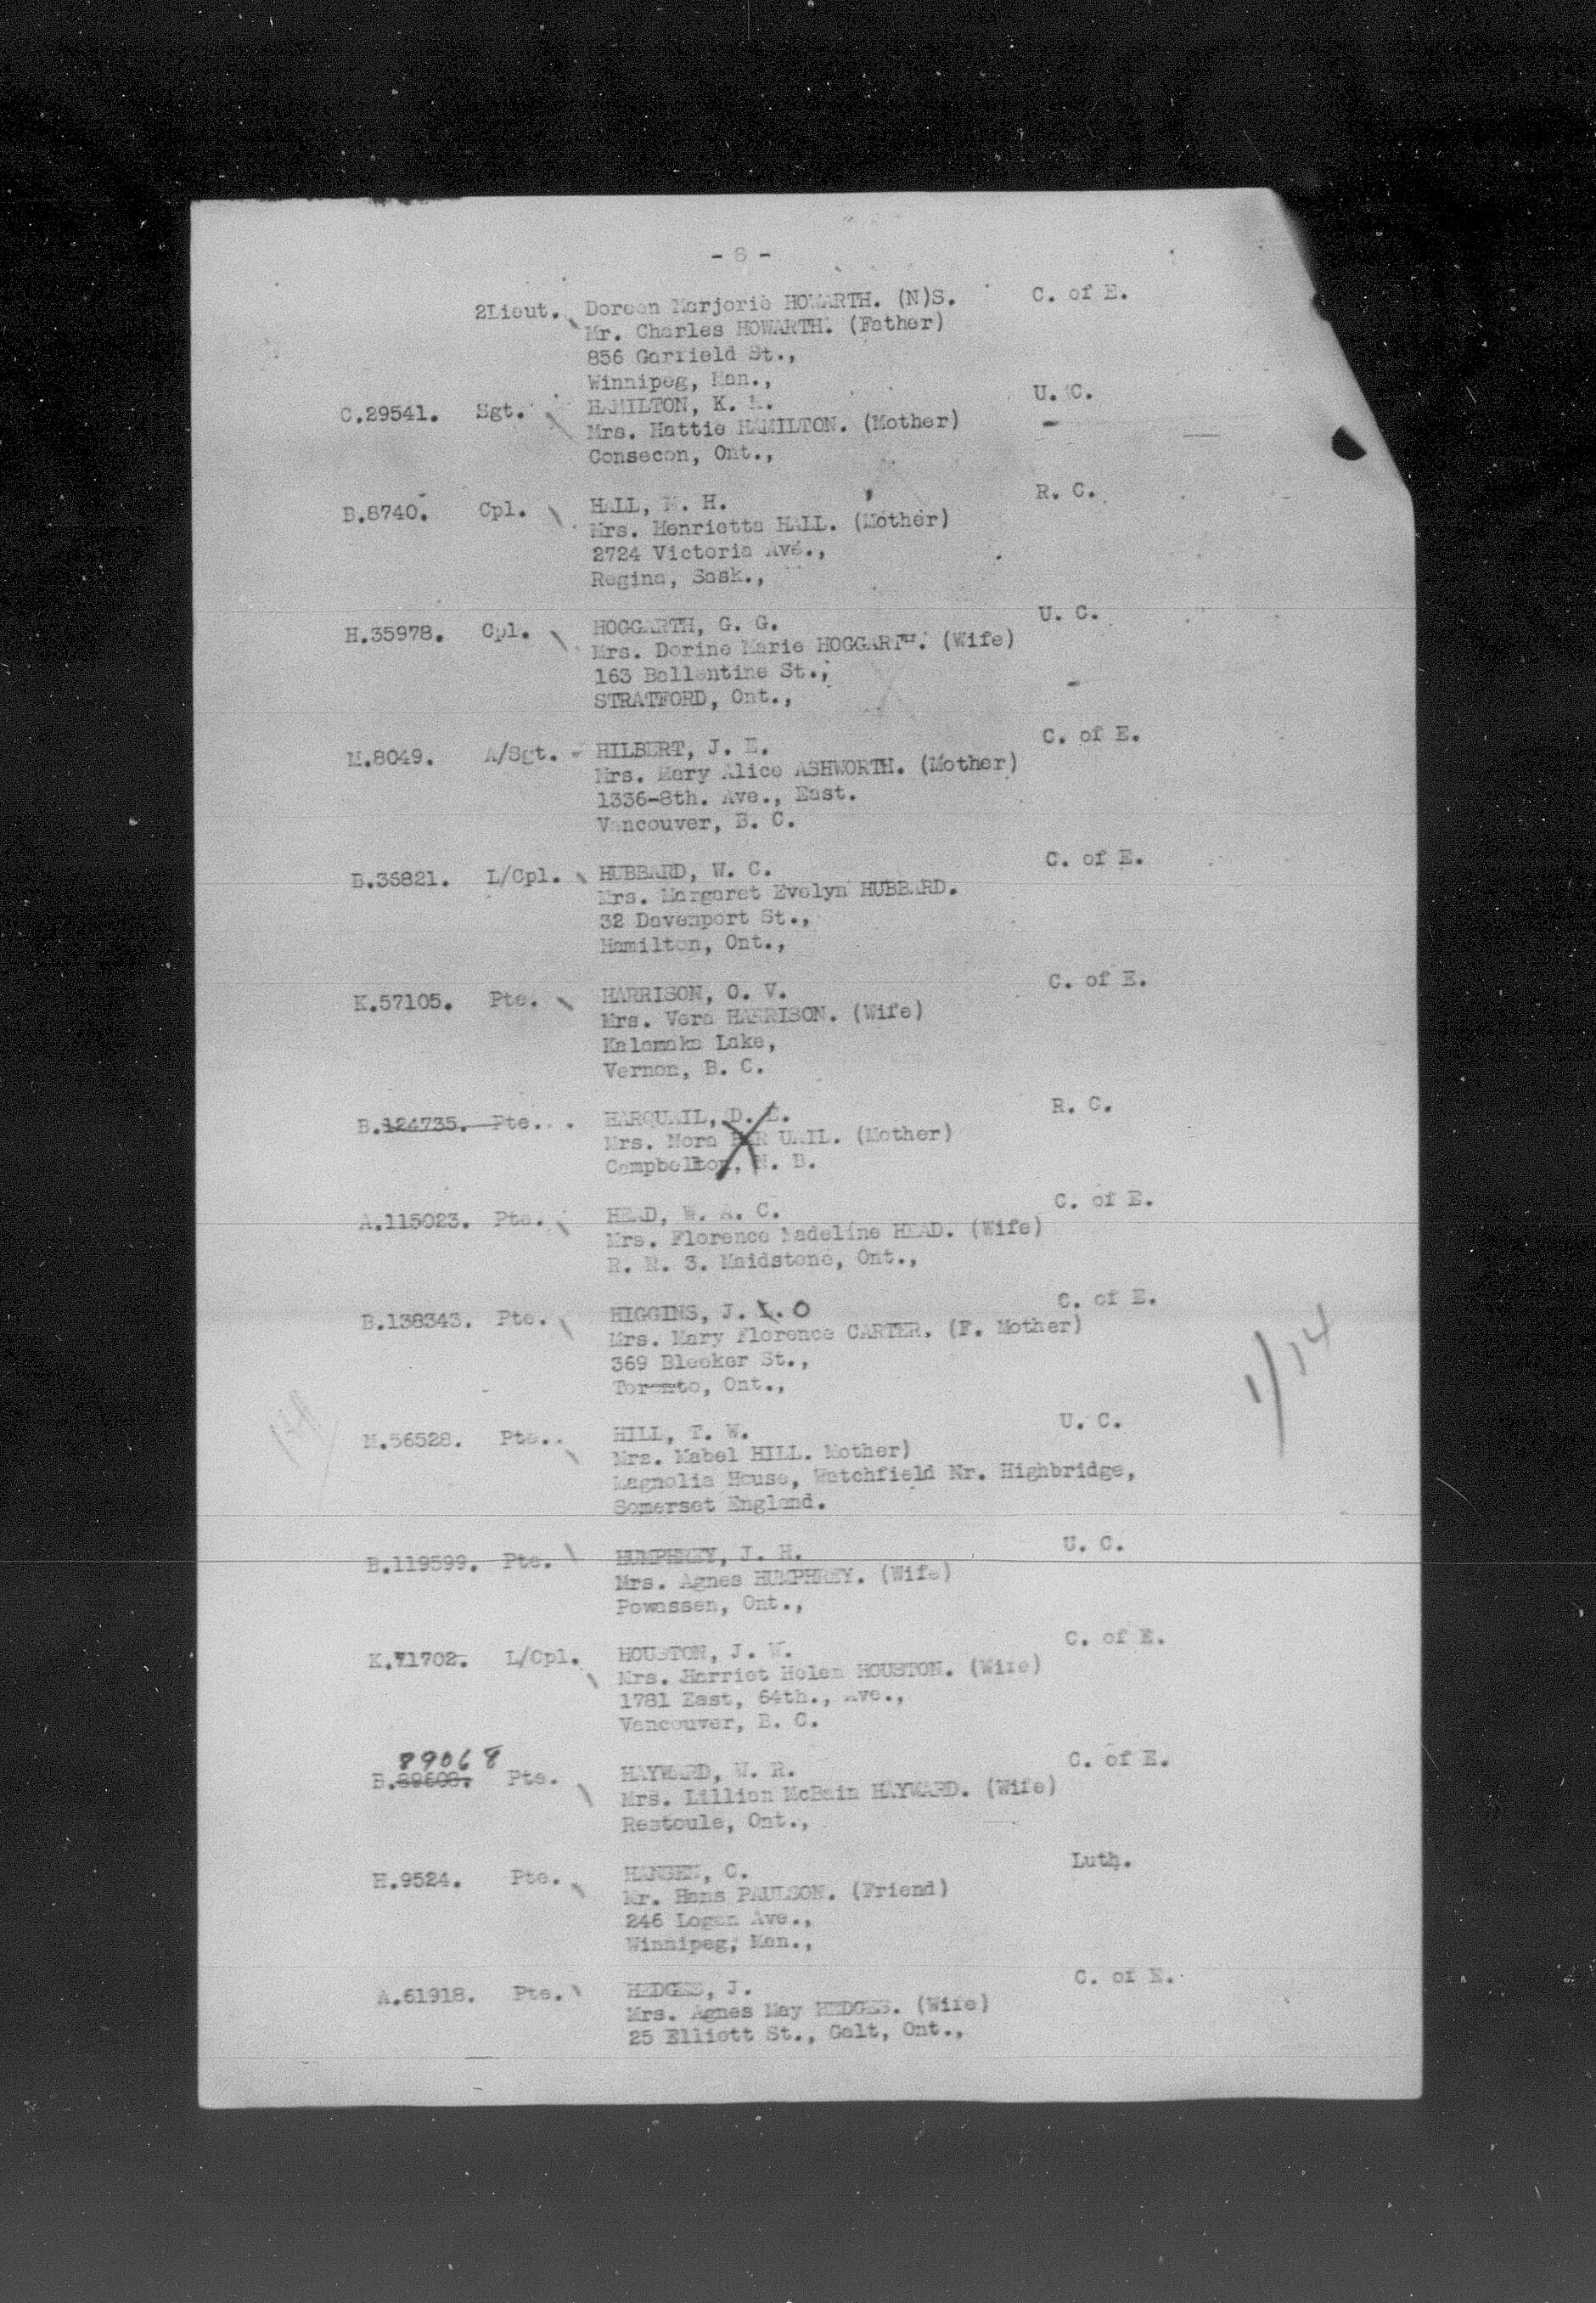 - 6 -
2Lieut. Doreen Marjorie HOWARTH. (N)S. C. of E.
Mr. Charles HOWARTH. (Father)
856 Garfield St.,
Winnipeg, Man.,
C.29541. Sgt. HAMILTON, K. U. C.
Mrs. Hattie HAMILTON. (Mother)
Consecon, Ont.,
B.8740. Cpl. HALL, H. R. C.
Mrs. Henrietta HALL. (Mother)
2724 Victoria Ave.,
Regina, Sask.,
H.35978. Cpl. HOGGARTH, G. G. U. C.
Mrs. Dorine Marie HOGGARTH. (Wife)
163 Ballantine St.,
STRATFORD, Ont.,
M.8049. A/Sgt. HILBERT, J. E. C. of E.
Mrs. Mary Alice ASHWORTH. (Mother)
1336-8th. Ave., East.
Vancouver, B. C.
B.36821. L/Cpl. HUBBARD, W. C. C. of E.
Mrs. Margaret Evelyn HUBBARD.
32 Davenport St.,
Hamilton, Ont.,
K.57105. Pte. HARRISON, O. V. C. of E.
Mrs. Vera HARRISON. (Wife)
Kalamaka Lake,
Vernon, B. C.
B.124735. Pte. HARQUAIL, D. R. C.
Mrs. Nora HAR UAIL. (Mother)
Campbellton, N. B.
A.115023. Pte. HEAD, W. A. C. C. of E.
Mrs. Florence Madeline HEAD. (Wife)
R. R. 3. Maidstone, Ont.,
B.138343. Pte. HIGGINS, J. O C. of E.
Mrs. Mary Florence CARTER. (F. Mother)
369 Bleeker St.,
Toronto, Ont.,
1/14
M.56528. Pte. HILL, T. W. U. C.
Mrs. Mabel HILL. Mother)
Magnolia House, Watchfield Nr. Highbridge,
Somerset England.
B.119599. Pte. HUMPHREY, J. H. U. C.
Mrs. Agnes HUMPHREY. (Wife)
Powassen, Ont.,
K.71702. L/Cpl. HOUSTON, J. W. C. of E.
Mrs. Harriet Helen HOUSTON. (Wife)
1781 East, 64th., Ave.,
Vancouver, B. C.
89068
B.89608. Pte. HAYWARD, W. R. C. of E.
Mrs. Lillian McBain HAYWARD. (Wife)
Restoule, Ont.,
H.9524. Pte. HANSEN, C. Luth.
Mr. Hans PAULSON. (Friend)
246 Logan Ave.,
Winnipeg, Man.,
A.61918. Pte. HEDGES, J. C. of E.
Mrs. Agnes May HEDGES. (Wife)
25 Elliott St., Galt, Ont.,